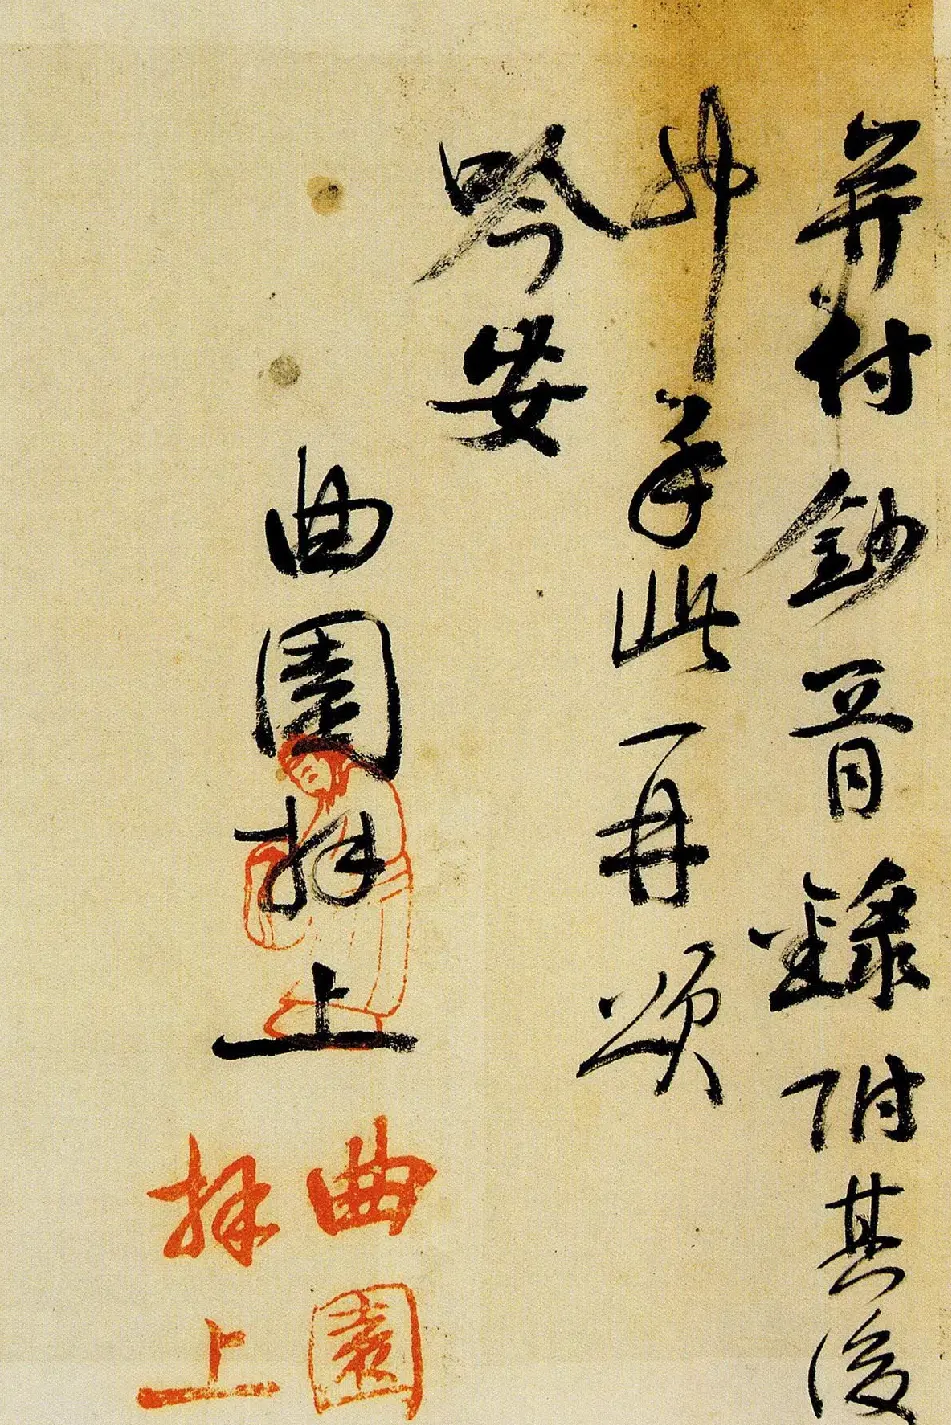 并付鈔胥錄附其後
草此再頌
吟安
曲園拜上
曲園
拜上